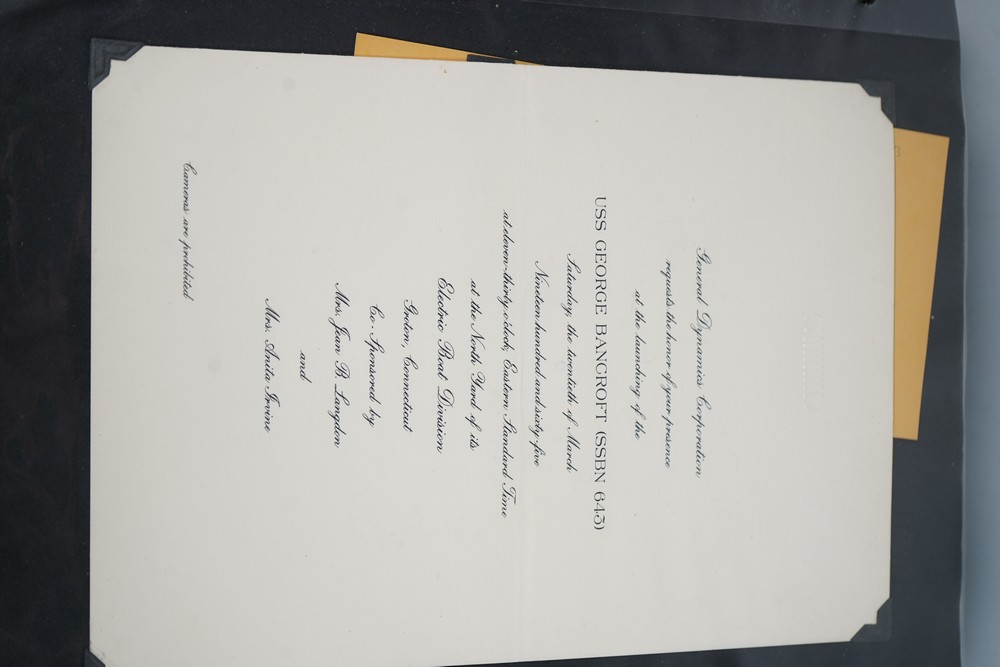 General Dynamics Corporation
requests the honor of your presence
at the launching of the
USS GEORGE BANCROFT (SSBN 643)
Saturday, the twentieth of March
Nineteen hundred and sixty-five
at eleven-thirty o'clock, Eastern Standard Time
at the North Yard of its
Electric Boat Division
Groton, Connecticut
Co-Sponsored by
Mrs. Jean B. Langdon
and
Mrs. Anita Irvine
Cameras are prohibited